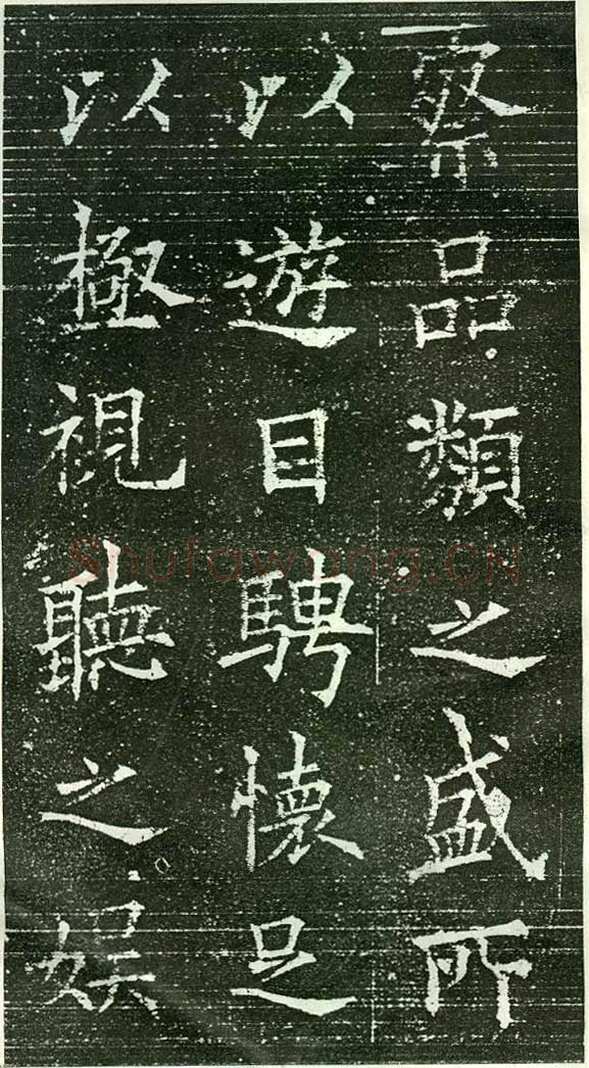 察品類之盛所
以遊目騁懷足
以極視聽之娛
Shufawang.CN